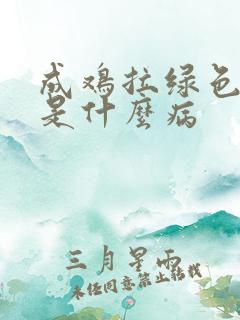 成鸡拉绿色
是什麼病
三月星雨
未经同意禁止转载